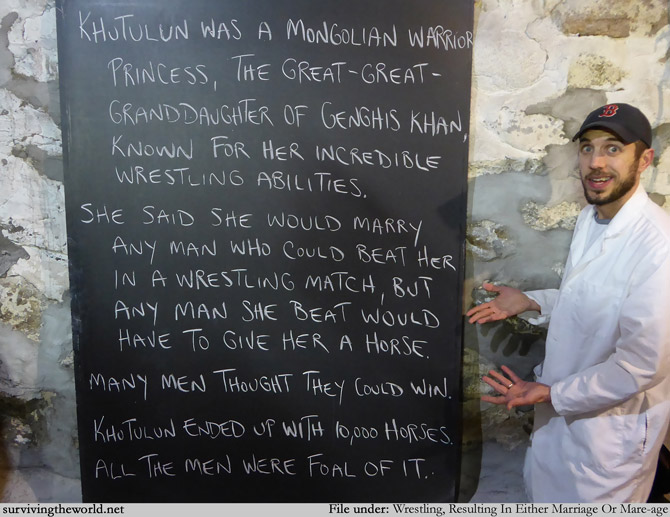 KHUTULUN WAS A MONGOLIAN WARRIOR
PRINCESS, THE GREAT-GREAT-
GRANDDAUGHTER OF GENGHIS KHAN,
KNOWN FOR HER INCREDIBLE
WRESTLING ABILITIES.
SHE SAID SHE WOULD MARRY
ANY MAN WHO COULD BEAT HER
IN A WRESTLING MATCH, BUT
ANY MAN SHE BEAT WOULD
HAVE TO GIVE HER A HORSE.
MANY MEN THOUGHT THEY COULD WIN.
KHUTULUN ENDED UP WITH 10,000 HORSES.
ALL THE MEN WERE FOAL OF IT.
B
survivingtheworld.net
File under: Wrestling, Resulting In Either Marriage Or Mare-age